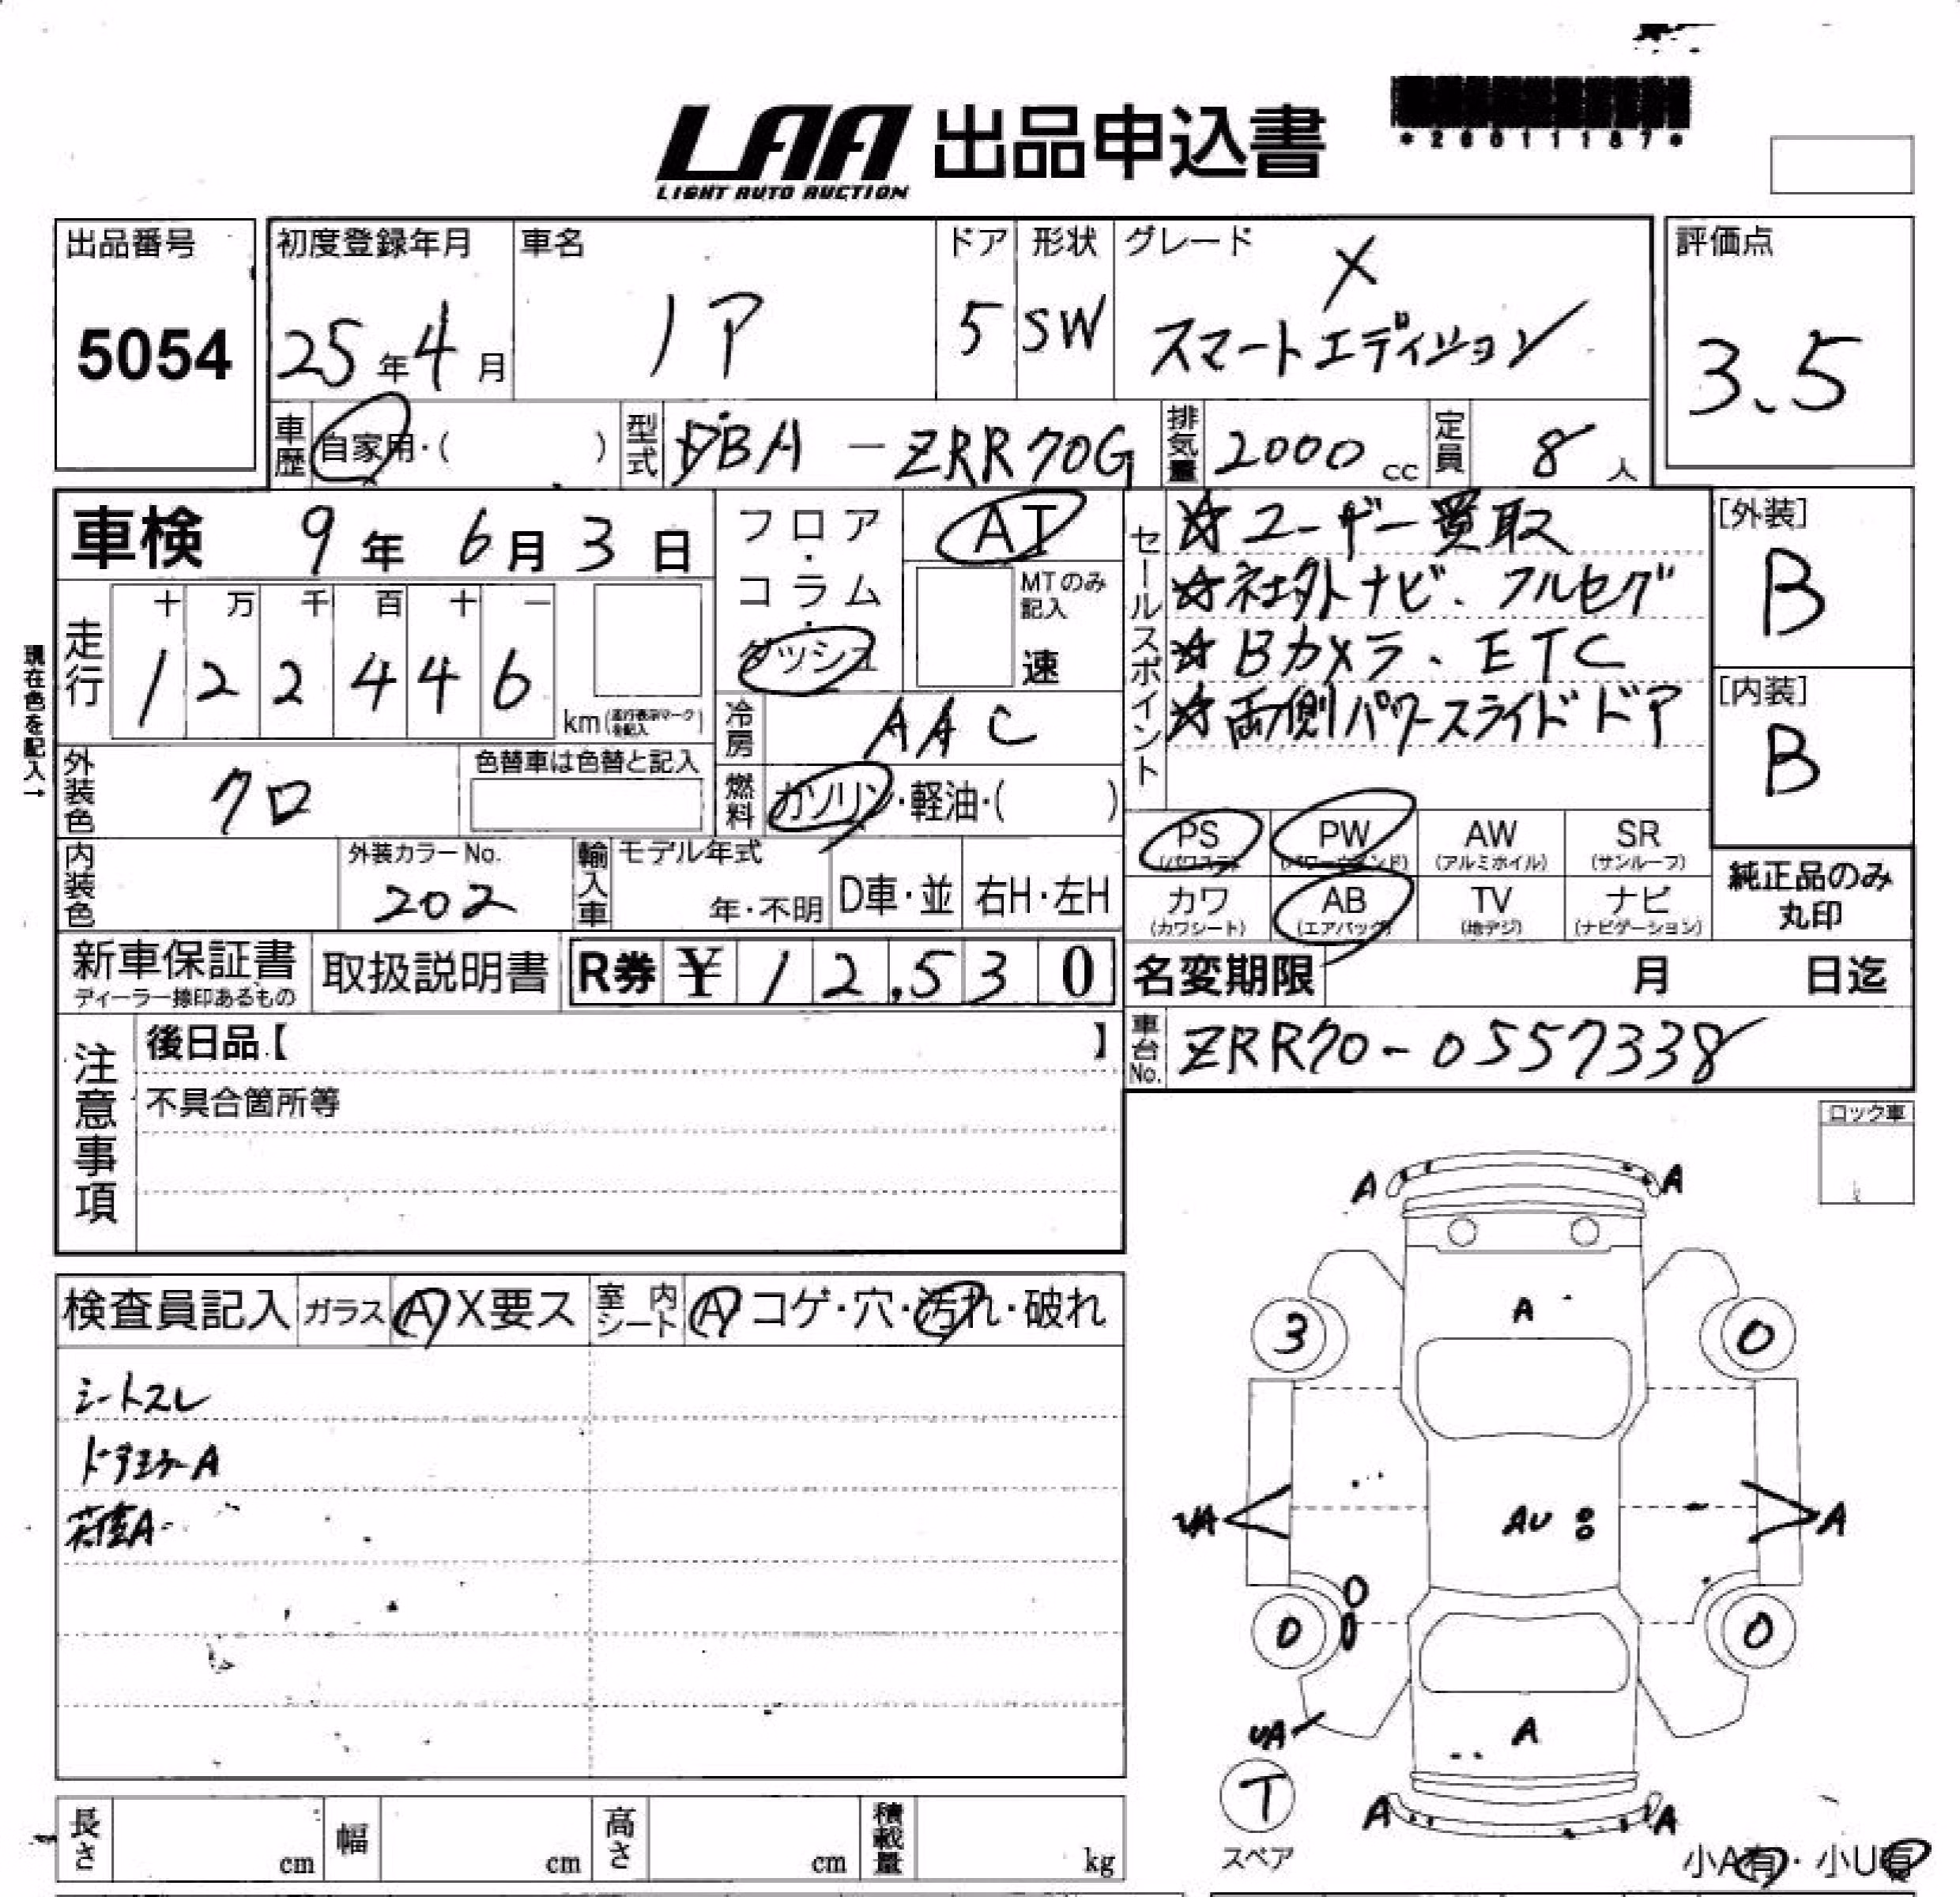 LAA 出品申込書
LIGHT AUTO AUCTION
*20011187*
出品番号 5054
初度登録年月 25年4月
車名 ノア
ドア 5
形状 SW
グレード X
スマートエディション
評価点 3.5
車歴 自家用・( )
型式 DBA-ZRR70G
排気量 2000 cc
定員 8人
車検 9年6月3日
フロア・コラム・ダッシュ
AT
MTのみ記入
速
現在色を記入→
走行
十 万 千 百 十 一
1 2 2 4 4 6 km (走行表示マークを記入)
冷房 AAC
燃料 ガソリン・軽油・( )
外装色 クロ
色替車は色替と記入
内装色
外装カラーNo. 202
輸入車 モデル年式 年・不明
D車・並 右H・左H
セールスポイント
☆ユーザー買取
☆社外ナビ、フルセグ
☆Bカメラ、ETC
☆両側パワースライドドア
[外装] B
[内装] B
PS (パワステ) PW (パワーウィンド) AW (アルミホイル) SR (サンルーフ)
カワ (カワシート) AB (エアバッグ) TV (地デジ) ナビ (ナビゲーション)
純正品のみ
丸印
新車保証書
ディーラー捺印あるもの
取扱説明書
R券 ¥12,530
名変期限 月 日迄
車台No. ZRR70-0557338
注意事項
後日品【 】
不具合箇所等
ロック車
検査員記入 ガラス A X要ス 室内シート A コゲ・穴・汚れ・破れ
シートスレ
A
A
A A
A
3 0
UA AU A
0 0
UA A
T
スペア
A A
長さ cm 幅 cm 高さ cm 積載量 kg
小A有・小U有